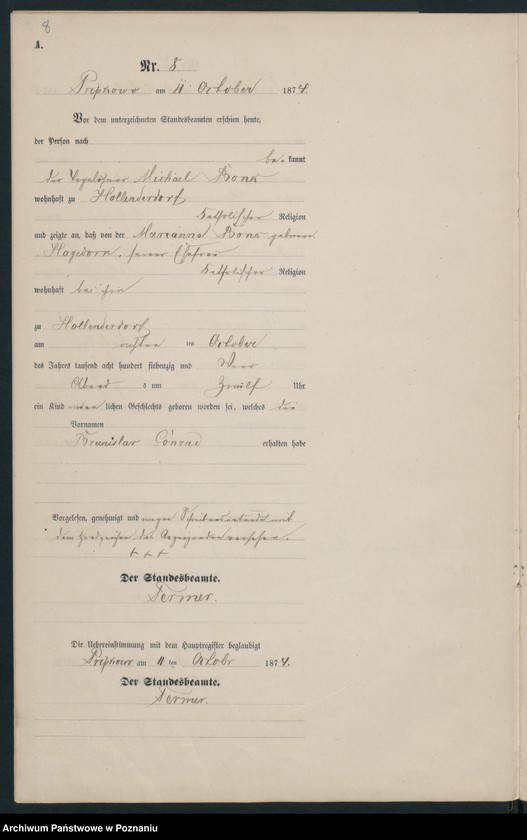 8
A.
Nr. 8
am 11 October 1874.
Vor dem unterzeichneten Standesbeamten erschien heute,
der Person nach
be kannt
der Michael Bonk
wohnhaft zu Hollenderdorf
katholischer Religion
und zeigte an, daß von der Marianna Bonk geborenen
Hagedorn, seiner Ehefrau
katholischer Religion
wohnhaft bei ihm
zu Hollenderdorf
am ten October
des Jahres tausend acht hundert siebenzig und vier
Abends um zwölf Uhr
ein Kind lichen Geschlechts geboren worden sei, welches die
Vornamen
Conrad erhalten habe
Vorgelesen, genehmigt und wegen mit
dem Handzeichen des Anzeigenden versehen.
+ + +
Der Standesbeamte.
Termer.
Die Uebereinstimmung mit dem Hauptregister beglaubigt
am 11 ten Octobr 1874.
Der Standesbeamte.
Termer.
Archiwum Państwowe w Poznaniu